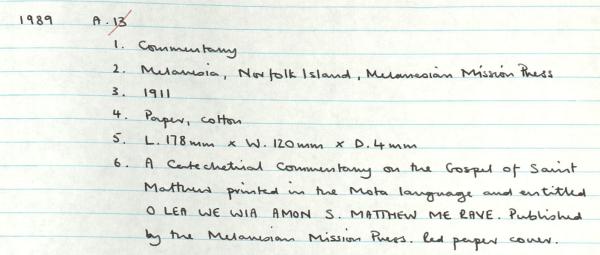 1989 A.13
1. Commentary
2. Melanesia, Norfolk Island, Melanesian Mission Press
3. 1911
4. Paper, cotton
5. L. 178mm x W. 120mm x D. 4mm
6. A Catechetical Commentary on the Gospel of Saint
Matthew printed in the Mota language and entitled
O LEA WE WIA AMON S. MATTHEW ME RAVE. Published
by the Melanesian Mission Press. Red paper cover.